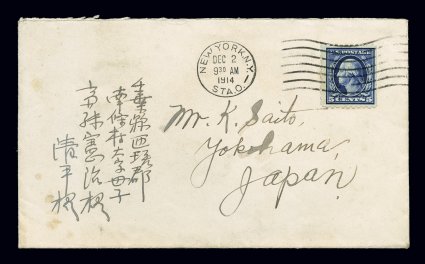 NEW YORK, N.Y.
DEC 2
9 30 AM
1914
STA. O.
U.S. POSTAGE
5 CENTS 5
Mr. K. Saito,
Yokohama,
Japan.
千葉縣匝瑳郡
南條村大字母子
高殊憲治様
清平様